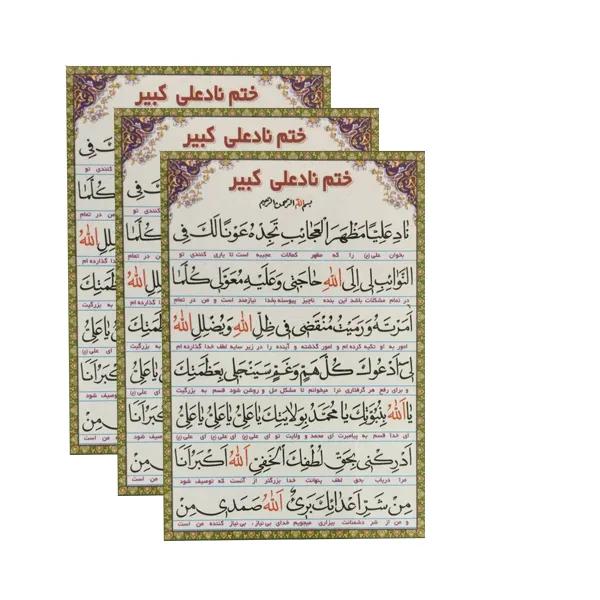 ختم نادعلی کبیر
ختم نادعلی کبیر
ختم نادعلی کبیر
بسم الله الرحمن الرحیم
نادِ عَلِیًّا مَظهَرَ العَجائِبِ تَجِدهُ عَونًا لَکَ فِی
بخوان علی (ع) را که مظهر کمالات عجیبه است تا یاری کنندی تو
النَّوائِبِ لی اِلَی اللهِ حاجَتی وَ عَلَیهِ مُعَوَّلی کُلَّما
در تمام مشکلات باشد این بنده ناچیز پیوسته بخدا نیازمند است و من در تمام
اَمَرتَهُ وَ رَمَیتُ مُنقَضی فی ظِلِّ اللهِ وَ یُضلِلِ اللهُ
امور به او تکیه کرده ام و امور گذشته و آینده را در زیر سایه لطف خدا گذارده ام
لی اَدعُوکَ کُلَّ هَمٍّ وَ غَمٍّ سَیَنجَلی بِعَظَمَتِکَ
و برای رفع هر گرفتاری ترا میخوانم تا مشکل مل و روشن شود قسم به بزرگیت
یا اَللهُ بِنُبُوَّتِکَ یا مُحَمَّدُ بِوِلایَتِکَ یا عَلِیُّ یا عَلِیُّ یا عَلِیُّ
ای خدا قسم به پیامبرت ای محمد و ولایت تو ای علی (ع) ای علی (ع) ای علی (ع)
اَدرِکنی بِحَقِّ لُطفِکَ الخَفِیِّ اَللهُ اَکبَرُ اَنَا
مرا دریاب بحق لطف پنهانت خدا بزرگتر از آنست که توصیف شود
مِن شَرِّ اَعدائِکَ بَریءٌ اَللهُ صَمَدی مِن
و من از شر دشمنانت بیزاری میجویم خدای بی نیاز، بی نیاز کننده من است